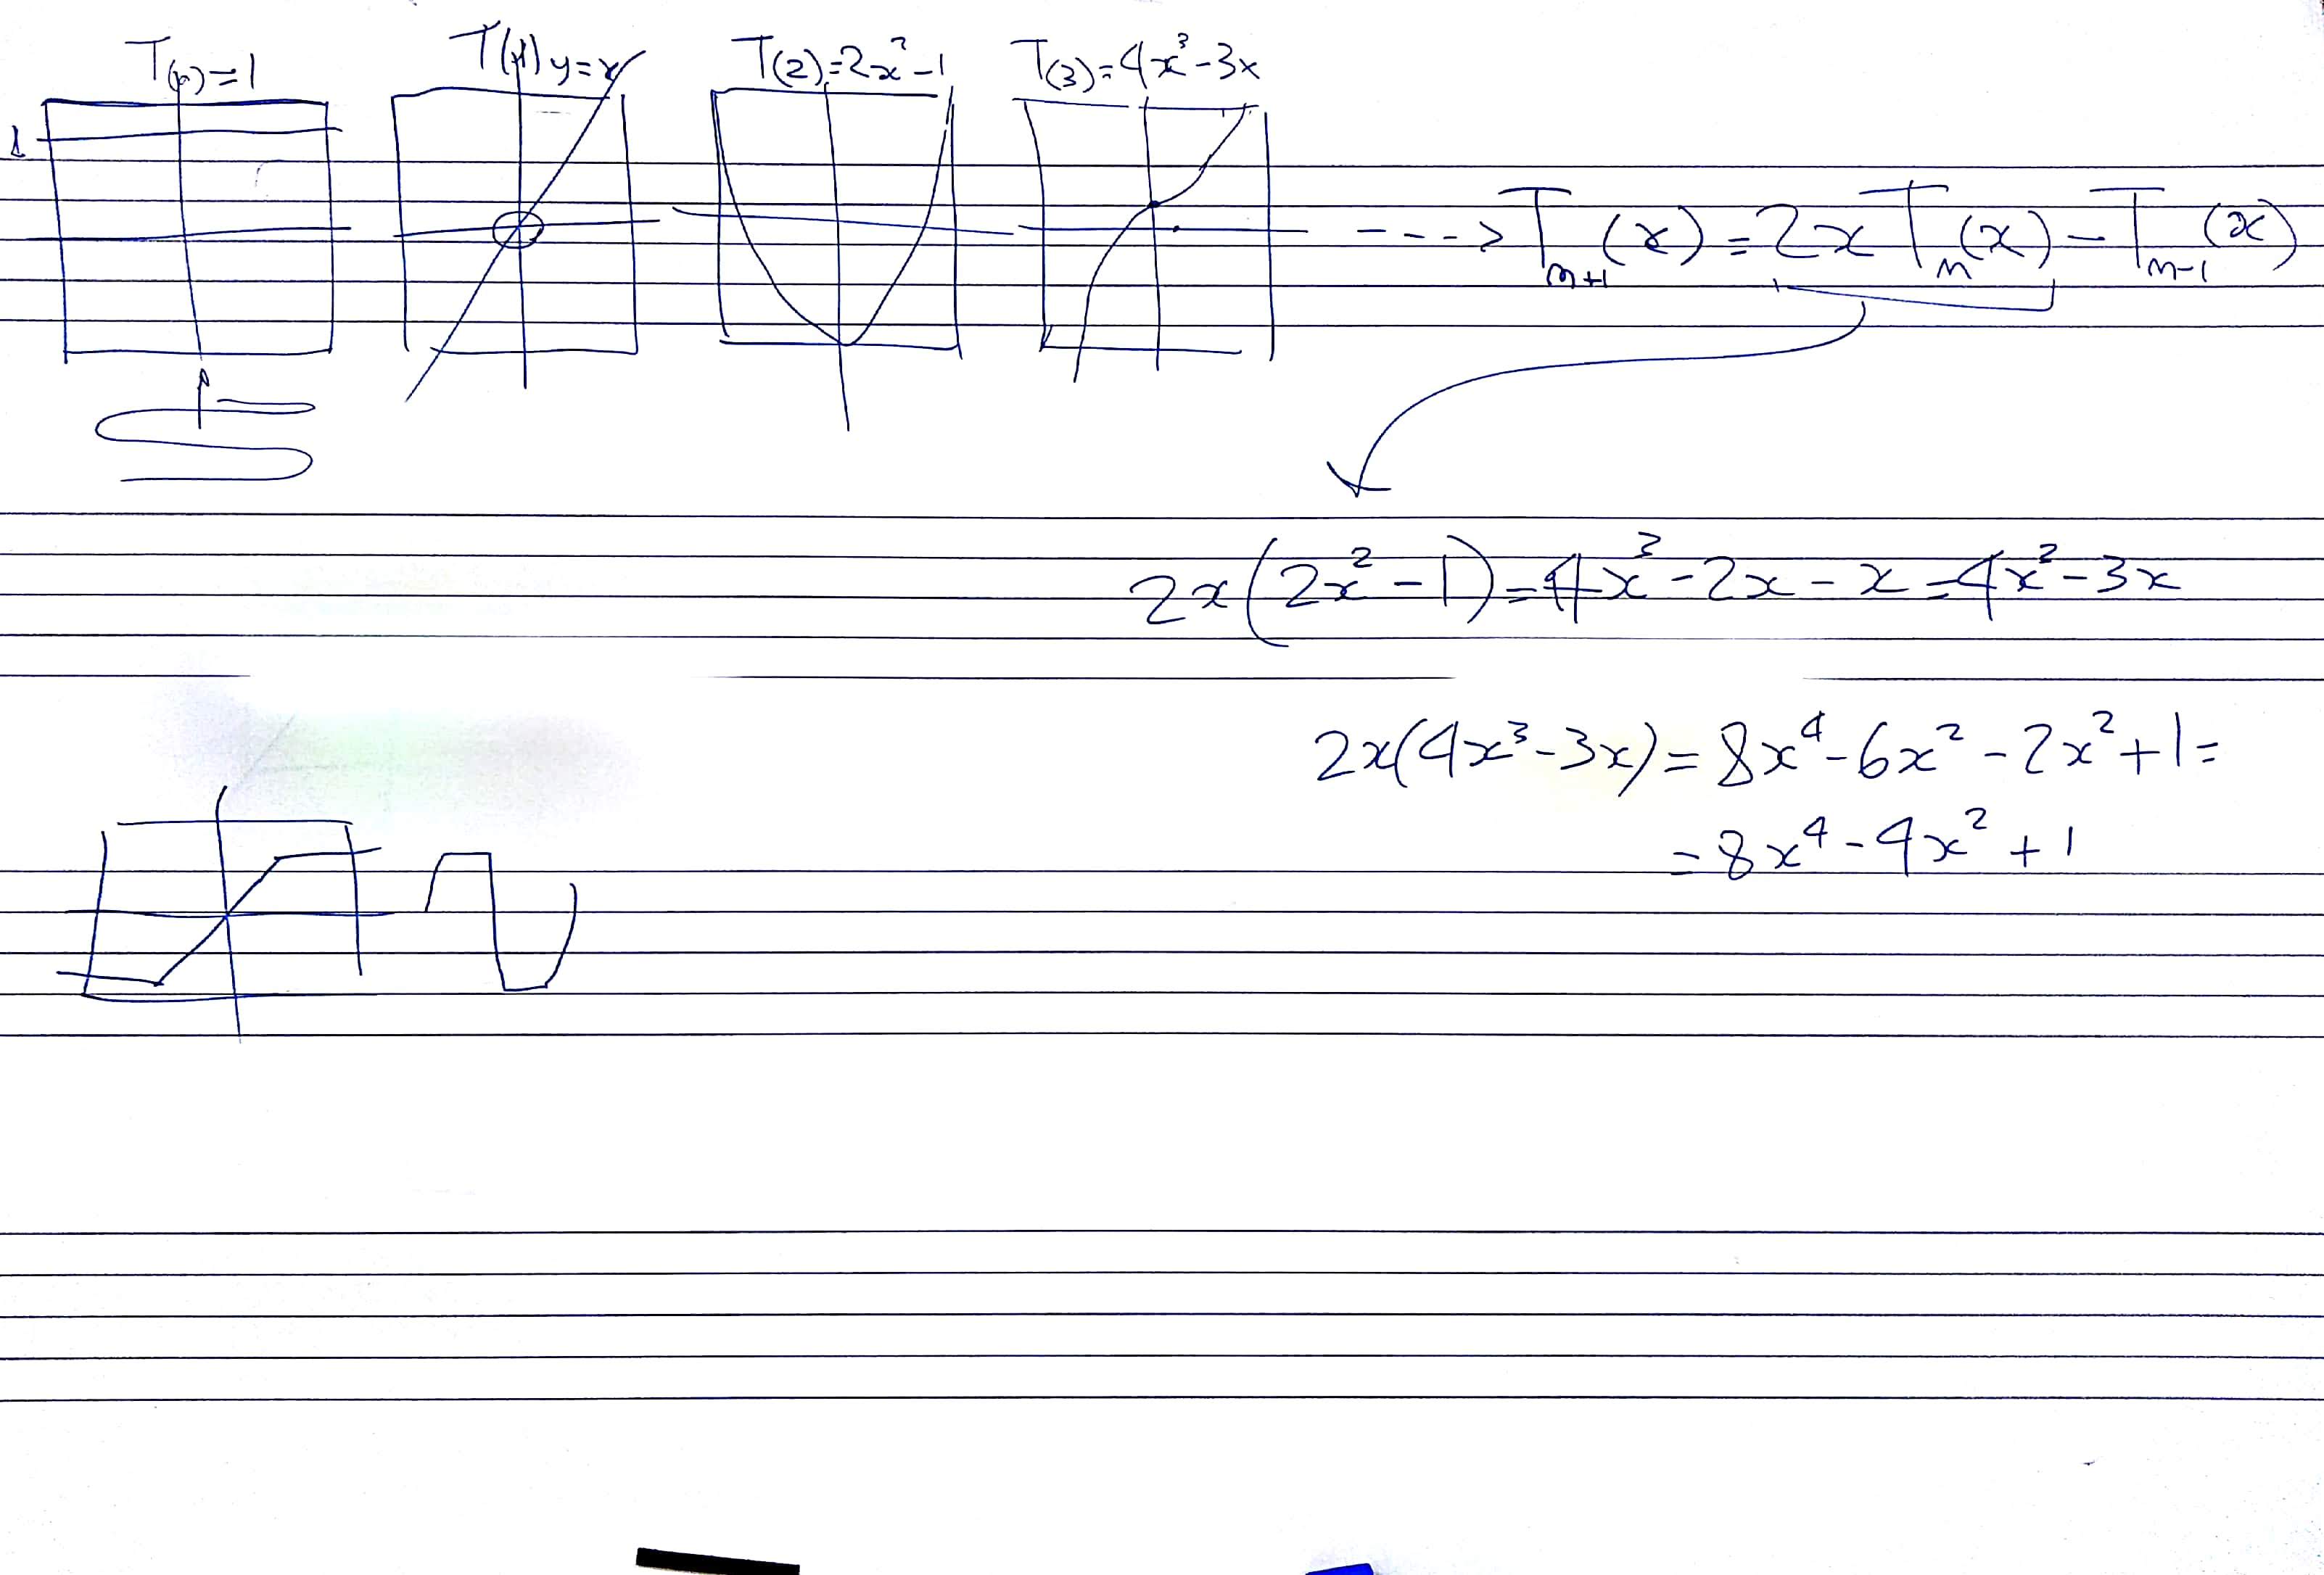 T(0)=1
T(1) y=x
T(2)=2x²-1
T(3)=4x³-3x
1
---> Tₙ₊₁(x)=2xTₙ(x)-Tₙ₋₁(x)
2x(2x²-1)=4x³-2x-x=4x³-3x
2x(4x³-3x)=8x⁴-6x²-2x²+1=
=8x⁴-4x²+1